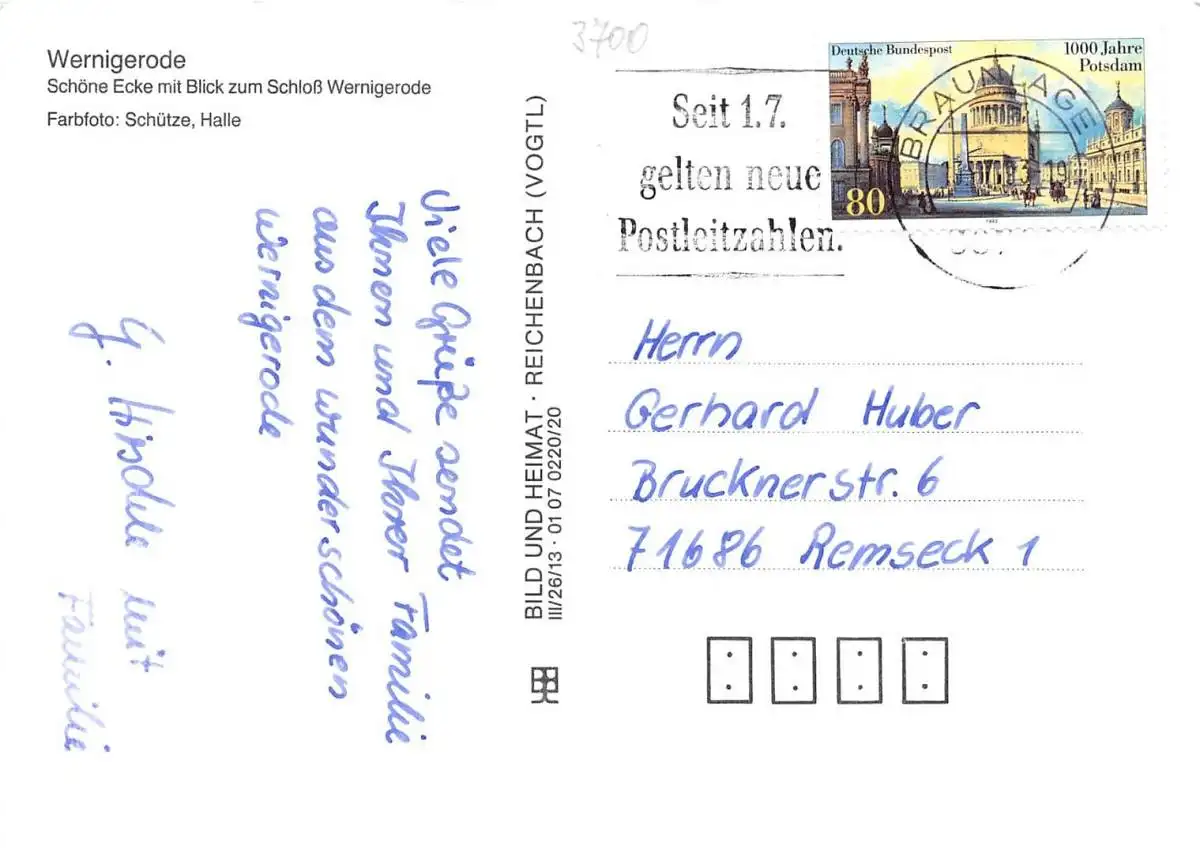 3700
Wernigerode
Schöne Ecke mit Blick zum Schloß Wernigerode
Farbfoto: Schütze, Halle
Viele Grüße sendet
Ihnen und Ihrer Familie
aus dem wunderschönen
Wernigerode
G. mit
Familie
BILD UND HEIMAT · REICHENBACH (VOGTL)
III/26/13 · 01 07 0220/20
Seit 1.7.
gelten neue
Postleitzahlen.
Deutsche Bundespost
1000 Jahre
Potsdam
80
BRAUNLAGE
Herrn
Gerhard Huber
Brucknerstr. 6
71686 Remseck 1